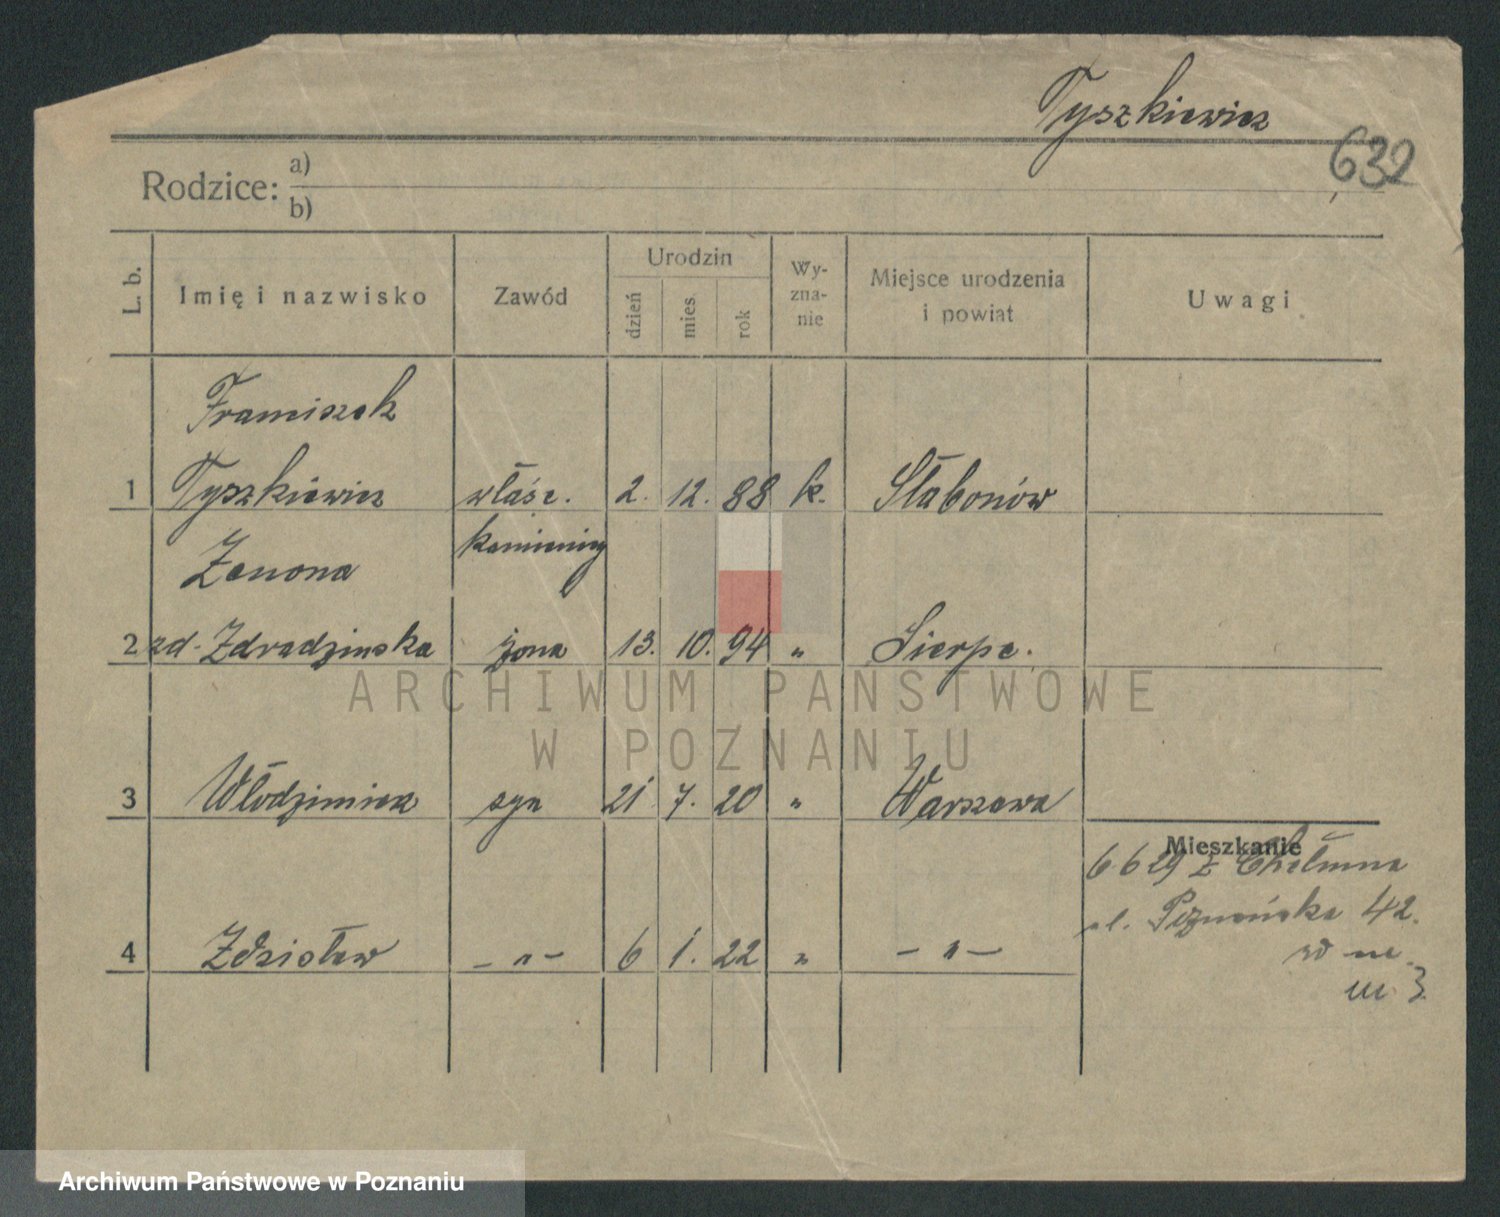 Tyszkiewicz
632
Rodzice: a)
b)
L. b. Imię i nazwisko Zawód Urodzin dzień mies. rok Wy-zna-nie Miejsce urodzenia i powiat Uwagi
Franciszek
1 Tyszkiewicz właśc. 2. 12. 88 k. Słabonów
kamienicy
Zenona
2 zd. Zdradzinska żona 13. 10. 94 " Sierpc.
ARCHIWUM PAŃSTWOWE
W POZNANIU
3 Włodzimierz syn 21 7. 20 " Warszawa
Mieszkanie
6.6 29 z Chełmna
ul. Poznańska 42.
4 Zdzisław – " – 6 1. 22 " – " –
m. 3
Archiwum Państwowe w Poznaniu